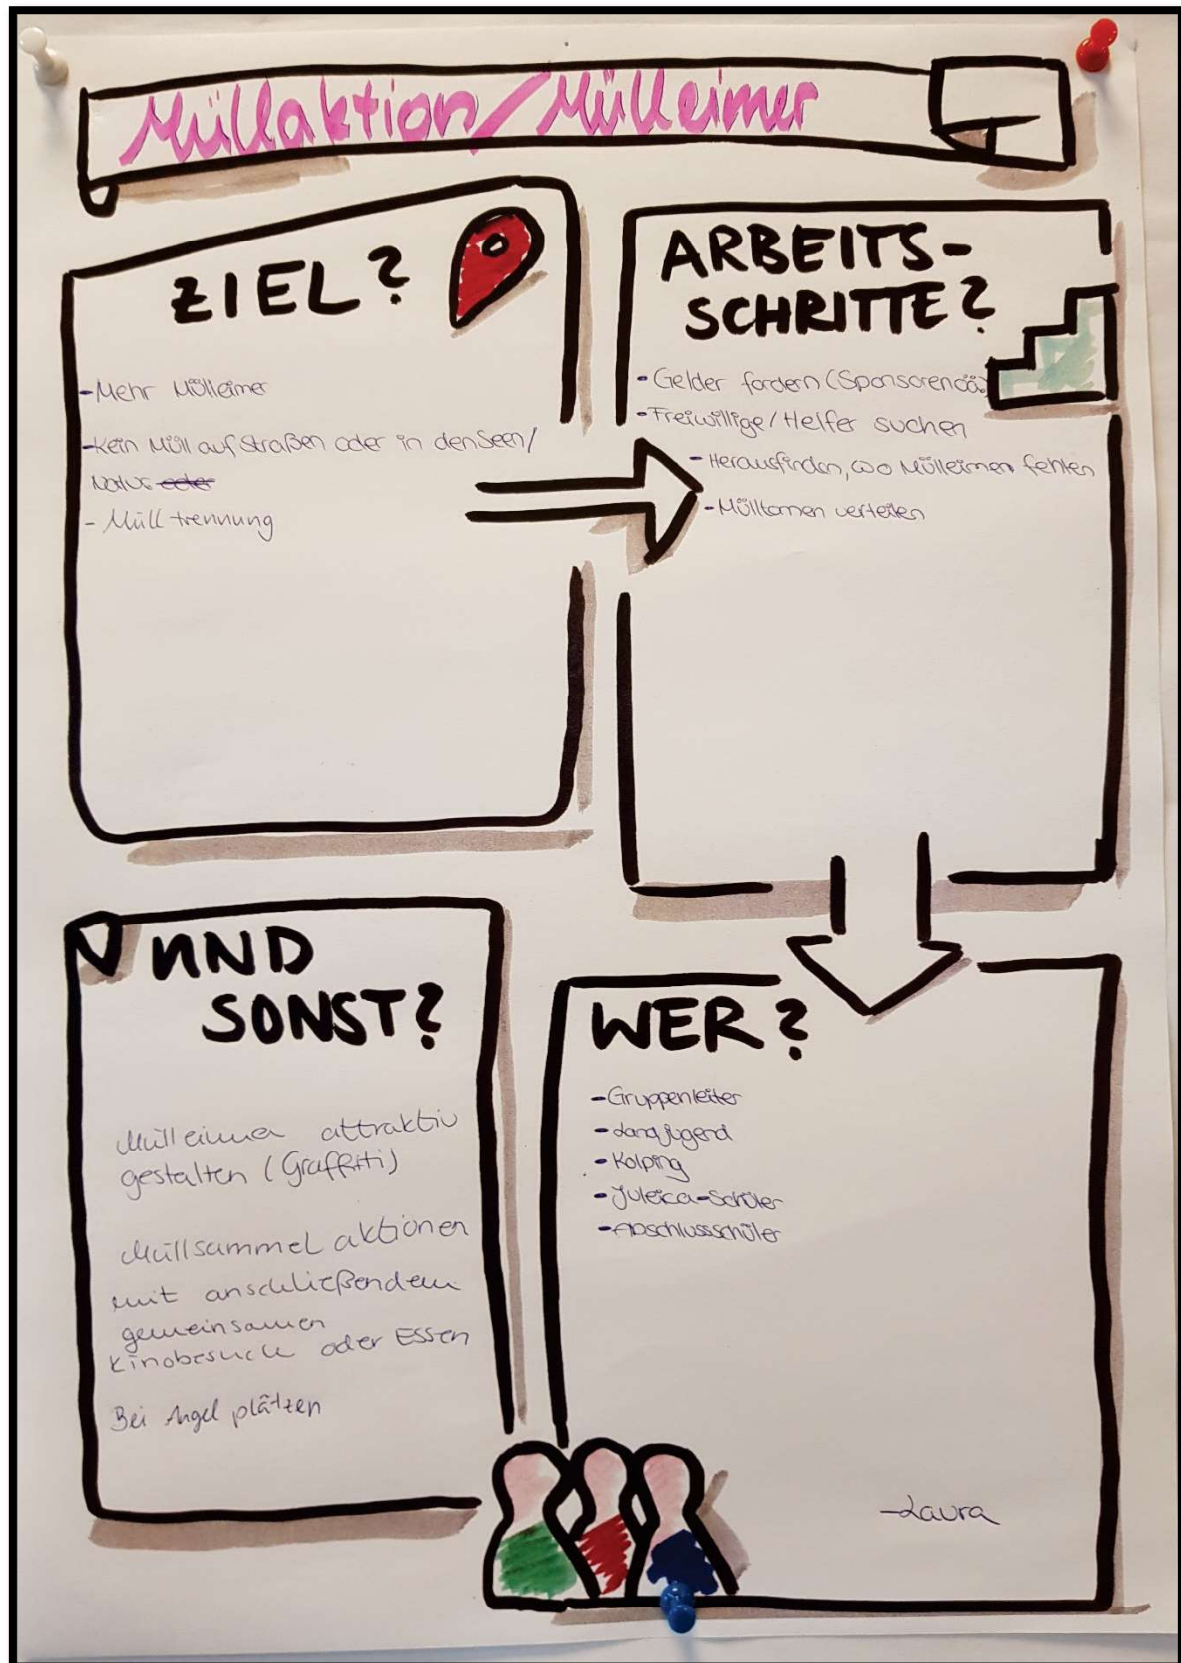 Müllaktion/Mülleimer
ZIEL?
-Mehr Mülleimer
-Kein Müll auf Straßen oder in den Seen/
Natur oder
- Mülltrennung
ARBEITS-
SCHRITTE?
- Gelder fordern (Sponsoren
- Freiwillige/Helfer suchen
- Herausfinden, wo Mülleimer fehlen
- Mülltonnen verteilen
UND
SONST?
Mülleimer attraktiv
gestalten (Graffiti)
Müllsammelaktionen
mit anschließendem
gemeinsamen
Kinobesuch oder Essen
Bei Angelplätzen
WER?
- Gruppenleiter
- Landjugend
- Kolping
- Juleica-Schüler
- Abschlussschüler
-Laura